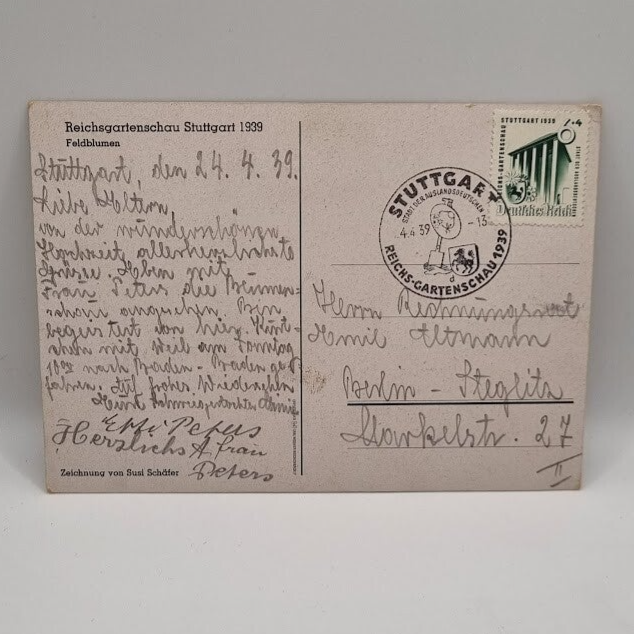 Reichsgartenschau Stuttgart 1939
Feldblumen
Stuttgart, den 24. 4. 39.
Liebe Eltern
von der wunderschönen
Hochzeit allerherzlichste
Grüsse. Haben mit
Frau Peters die Blumen-
schau angesehen. Bin
begeistert von hier.
mit Weil am Sonntag
nach Baden-Baden
fahren. Auf frohes Wiedersehn
Peters
Herzlichst Frau
Peters
Zeichnung von Susi Schäfer
STUTTGART 1939
REICHS-GARTENSCHAU
Deutsches Reich
STUTTGART
STADT DER AUSLANDSDEUTSCHEN
4.4.39 -13
d
REICHS-GARTENSCHAU 1939
Herrn Rechnungsrat
Emil Altmann
Berlin - Steglitz
Markelstr. 27
II